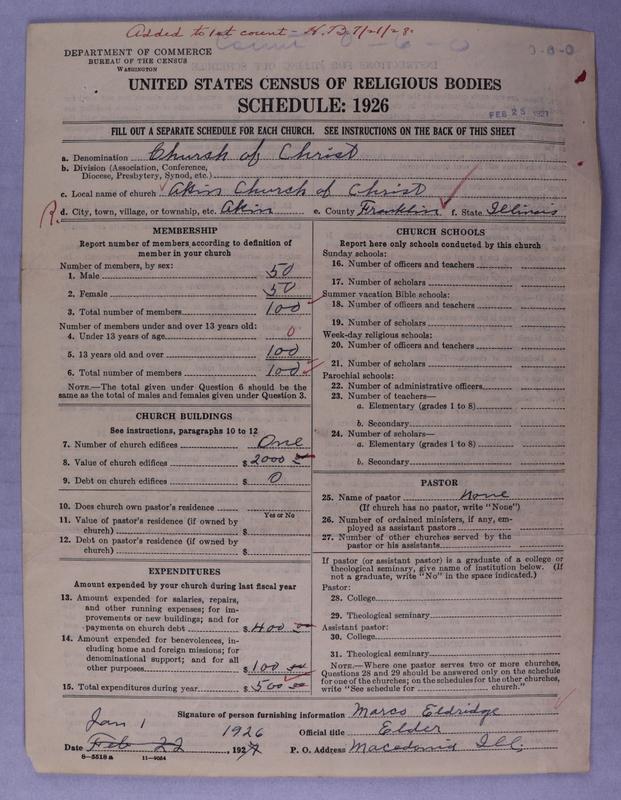 Added to 1st count - H.B. 7/21/28.
DEPARTMENT OF COMMERCE
BUREAU OF THE CENSUS
WASHINGTON
UNITED STATES CENSUS OF RELIGIOUS BODIES
SCHEDULE: 1926
FEB 25 1927
FILL OUT A SEPARATE SCHEDULE FOR EACH CHURCH. SEE INSTRUCTIONS ON THE BACK OF THIS SHEET
a. Denomination Church of Christ
b. Division (Association, Conference,
Diocese, Presbytery, Synod, etc.)
c. Local name of church Akin Church of Christ
R. d. City, town, village, or township, etc. Akin e. County Franklin f. State Illinois
MEMBERSHIP
Report number of members according to definition of
member in your church
Number of members, by sex:
1. Male 50
2. Female 50
3. Total number of members 100
Number of members under and over 13 years old:
4. Under 13 years of age 0
5. 13 years old and over 100
6. Total number of members 100
NOTE.—The total given under Question 6 should be the
same as the total of males and females given under Question 3.
CHURCH BUILDINGS
See instructions, paragraphs 10 to 12
7. Number of church edifices One
8. Value of church edifices $ 2000
9. Debt on church edifices $ 0
10. Does church own pastor's residence
Yes or No
11. Value of pastor's residence (if owned by
church) $
12. Debt on pastor's residence (if owned by
church) $
EXPENDITURES
Amount expended by your church during last fiscal year
13. Amount expended for salaries, repairs,
and other running expenses; for im-
provements or new buildings; and for
payments on church debt $ 400 00
14. Amount expended for benevolences, in-
cluding home and foreign missions; for
denominational support; and for all
other purposes $ 100 00
15. Total expenditures during year $ 500 00
CHURCH SCHOOLS
Report here only schools conducted by this church
Sunday schools:
16. Number of officers and teachers
17. Number of scholars
Summer vacation Bible schools:
18. Number of officers and teachers
19. Number of scholars
Week-day religious schools:
20. Number of officers and teachers
21. Number of scholars
Parochial schools:
22. Number of administrative officers
23. Number of teachers—
a. Elementary (grades 1 to 8)
b. Secondary
24. Number of scholars—
a. Elementary (grades 1 to 8)
b. Secondary
PASTOR
25. Name of pastor None
(If church has no pastor, write "None")
26. Number of ordained ministers, if any, em-
ployed as assistant pastors
27. Number of other churches served by the
pastor or his assistants
If pastor (or assistant pastor) is a graduate of a college or
theological seminary, give name of institution below. (If
not a graduate, write "No" in the space indicated.)
Pastor:
28. College
29. Theological seminary
Assistant pastor:
30. College
31. Theological seminary
NOTE.—Where one pastor serves two or more churches,
Questions 28 and 29 should be answered only on the schedule
for one of the churches; on the schedules for the other churches,
write "See schedule for church."
Signature of person furnishing information Marco Eldridge
Jan 1 1926 Official title Elder
Date Feb 22, 1927 P. O. Address Macedonia Ill.
8-5518 a 11-9054